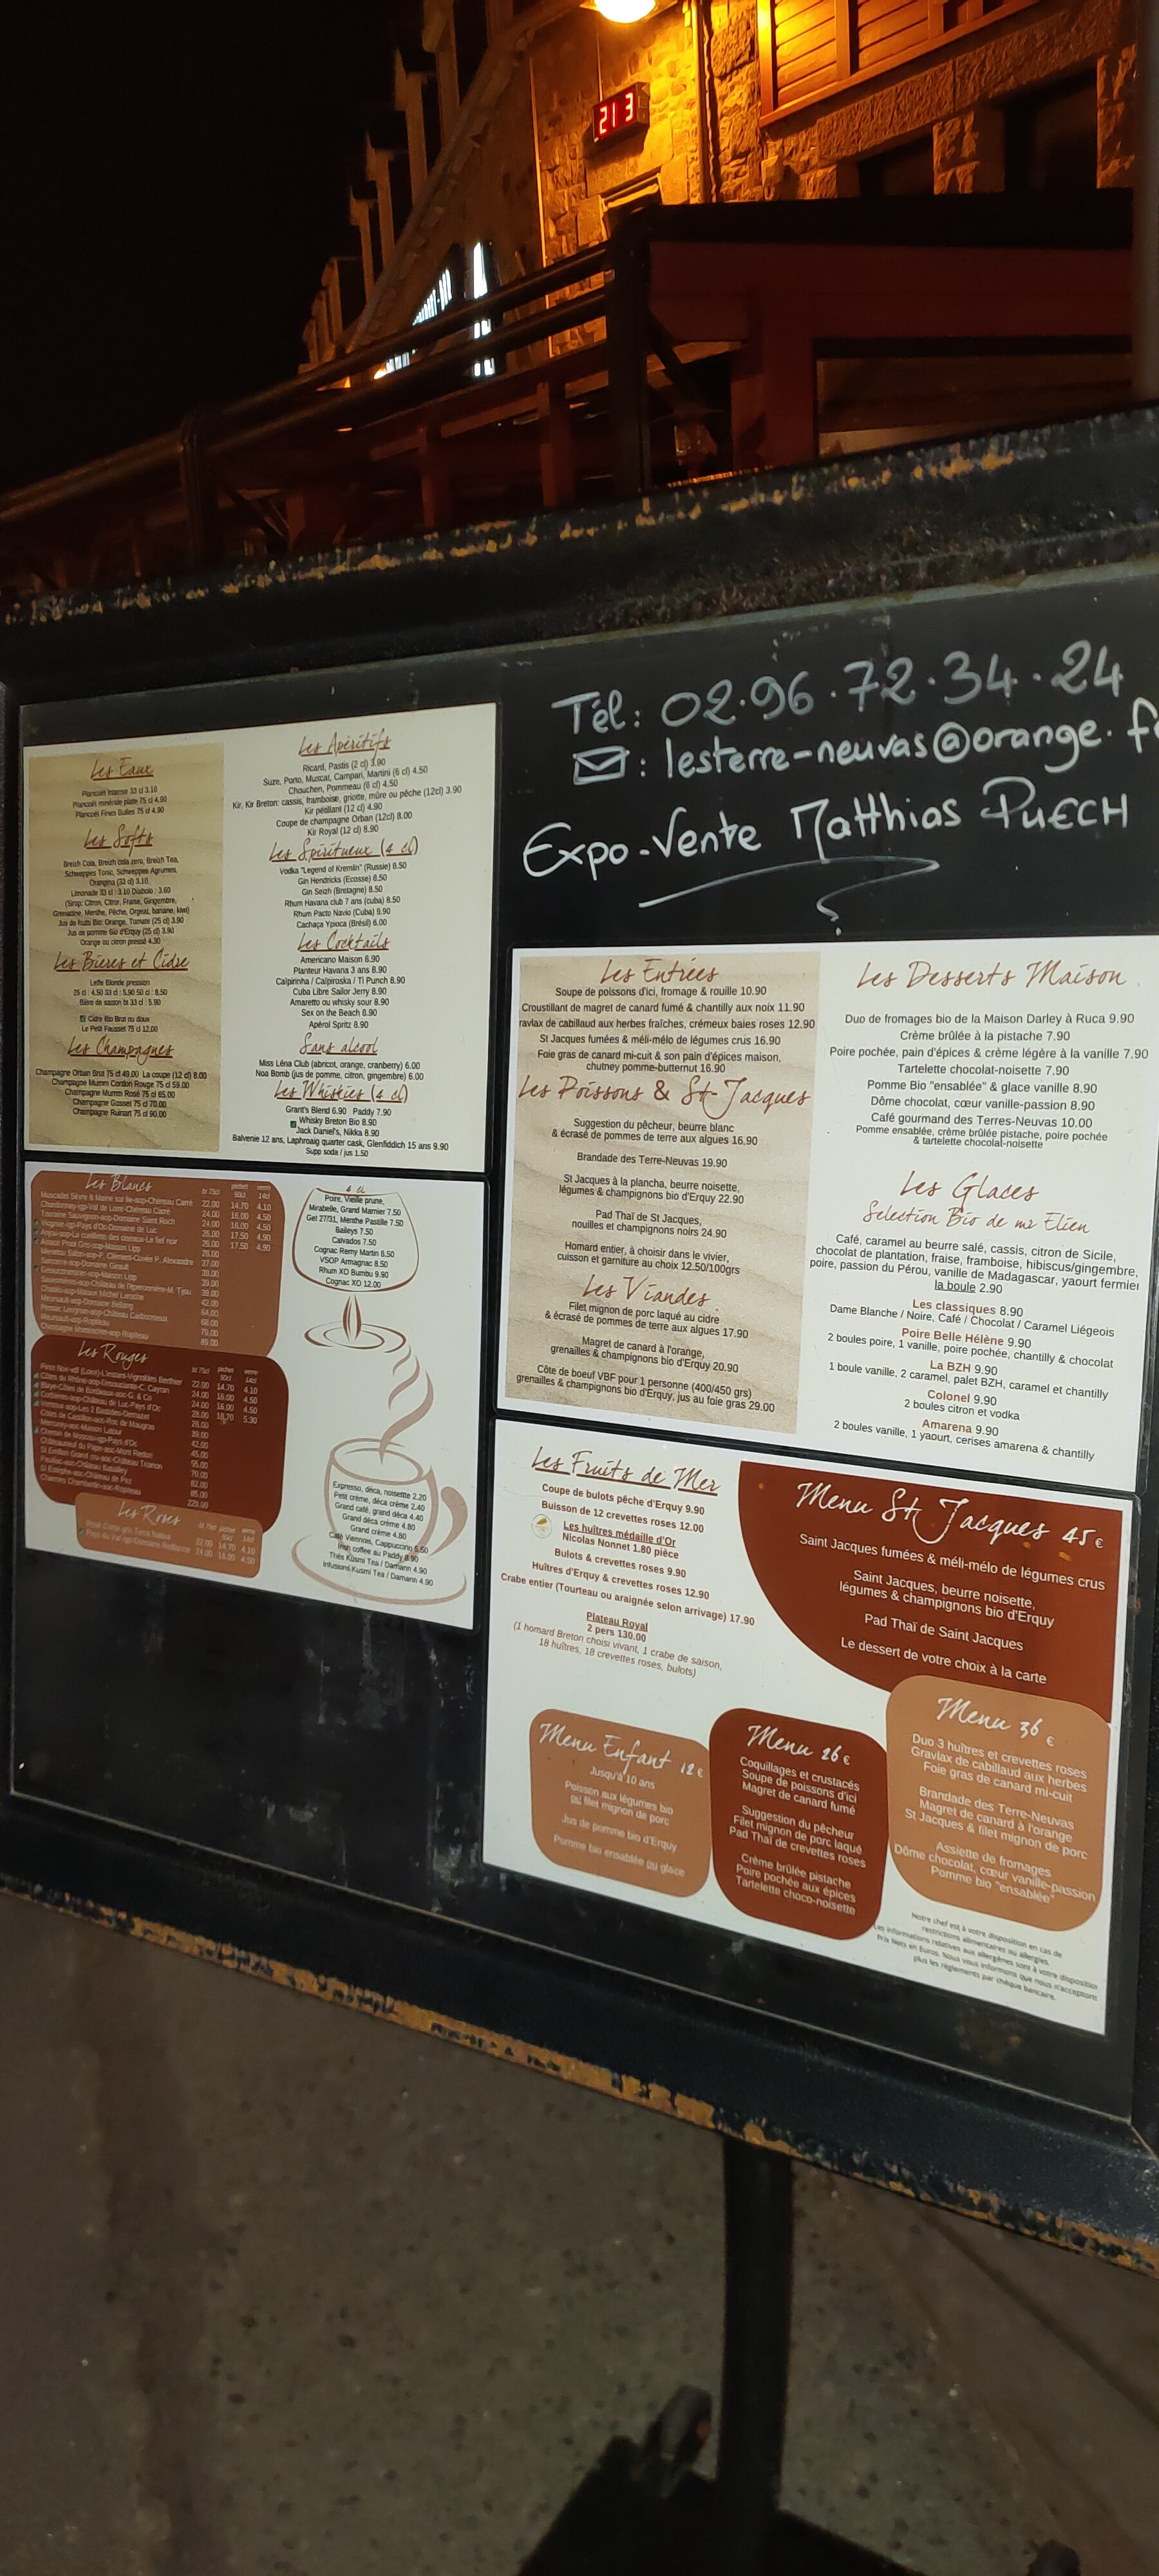 21 3
Tél: 02.96.72.34.24
: lesterre-neuvas@orange.f
Expo-Vente Matthias PUECH
Les Eaux
Plancoët intense 33 cl 3.10
Plancoët minérale plate 75 cl 4.90
Plancoët Fines Bulles 75 cl 4.90
Les Softs
Breizh Cola, Breizh cola zero, Breizh Tea,
Schweppes Tonic, Schweppes Agrumes,
Orangina (33 cl) 3.10,
Limonade 33 cl : 3.10 Diabolo : 3.60
(Sirop: Citron, Citror, Fraise, Gingembre,
Grenadine, Menthe, Pêche, Orgeat, banane, kiwi)
Jus de fruits Bio: Orange, Tomate (25 cl) 3.90
Jus de pomme Bio d'Erquy (25 cl) 3.90
Orange ou citron pressé 4.30
Les Bières et Cidre
Leffe Blonde pression
25 cl : 4.50 33 cl : 5.90 50 cl : 8.50
Bière de saison bt 33 cl : 5.90
Cidre Bio Brut ou doux
Le Petit Fausset 75 cl 12.00
Les Champagnes
Champagne Orban Brut 75 cl 49.00 La coupe (12 cl) 8.00
Champagne Mumm Cordon Rouge 75 cl 59.00
Champagne Mumm Rosé 75 cl 65.00
Champagne Gosset 75 cl 70.00
Champagne Ruinart 75 cl 90.00
Les Apéritifs
Ricard, Pastis (2 cl) 3.90
Suze, Porto, Muscat, Campari, Martini (6 cl) 4.50
Chouchen, Pommeau (6 cl) 4.50
Kir, Kir Breton: cassis, framboise, griotte, mûre ou pêche (12cl) 3.90
Kir pétillant (12 cl) 4.90
Coupe de champagne Orban (12cl) 8.00
Kir Royal (12 cl) 8.90
Les Spiritueux (4 cl)
Vodka "Legend of Kremlin" (Russie) 8.50
Gin Hendricks (Ecosse) 8.50
Gin Seizh (Bretagne) 8.50
Rhum Havana club 7 ans (cuba) 8.50
Rhum Pacto Navio (Cuba) 9.90
Cachaça Ypioca (Brésil) 6.00
Les Cocktails
Americano Maison 8.90
Planteur Havana 3 ans 8.90
Caïpirinha / Caïpiroska / Ti Punch 8.90
Cuba Libre Sailor Jerry 8.90
Amaretto ou whisky sour 8.90
Sex on the Beach 8.90
Apérol Spritz 8.90
Sans alcool
Miss Léna Club (abricot, orange, cranberry) 6.00
Noa Bomb (jus de pomme, citron, gingembre) 6.00
Les Whiskies (4 cl)
Grant's Blend 6.90 Paddy 7.90
Whisky Breton Bio 8.90
Jack Daniel's, Nikka 8.90
Balvenie 12 ans, Laphroaig quarter cask, Glenfiddich 15 ans 9.90
Supp soda / jus 1.50
Les Blancs
bt 75cl pichet 50cl verre 14cl
Muscadet Sèvre & Maine sur lie-aop-Château Carré 22.00 14.70 4.10
Chardonnay-igp-Val de Loire-Château Carré 24.00 16.00 4.50
Touraine Sauvignon-aop-Domaine Saint Roch 24.00 16.00 4.50
Viognier-igp-Pays d'Oc-Domaine de Luc 26.00 17.50 4.90
Les Rouges
bt 75cl pichet 50cl verre 14cl
22.00 14.70 4.10
24.00 16.00 4.50
24.00 16.00 4.50
28.00 18.70 5.30
Les Rosés
bt 75cl pichet 50cl verre 14cl
22.00 14.70 4.10
24.00 16.00 4.50
4 cl
Poire, Vieille prune,
Mirabelle, Grand Marnier 7.50
Get 27/31, Menthe Pastille 7.50
Baileys 7.50
Calvados 7.50
Cognac Remy Martin 8.50
VSOP Armagnac 8.50
Rhum XO Bumbu 9.90
Cognac XO 12.00
Expresso, déca, noisette 2.20
Petit crème, déca crème 2.40
Grand café, grand déca 4.40
Grand déca crème 4.80
Grand crème 4.80
Café Viennois, Cappuccino 6.50
Irish coffee au Paddy 8.90
Thés Kusmi Tea / Damann 4.90
Infusions Kusmi Tea / Damann 4.90
Les Entrées
Soupe de poissons d'ici, fromage & rouille 10.90
Croustillant de magret de canard fumé & chantilly aux noix 11.90
ravlax de cabillaud aux herbes fraîches, crémeux baies roses 12.90
St Jacques fumées & méli-mélo de légumes crus 16.90
Foie gras de canard mi-cuit & son pain d'épices maison,
chutney pomme-butternut 16.90
Les Poissons & St-Jacques
Suggestion du pêcheur, beurre blanc
& écrasé de pommes de terre aux algues 16.90
Brandade des Terre-Neuvas 19.90
St Jacques à la plancha, beurre noisette,
légumes & champignons bio d'Erquy 22.90
Pad Thaï de St Jacques,
nouilles et champignons noirs 24.90
Homard entier, à choisir dans le vivier,
cuisson et garniture au choix 12.50/100grs
Les Viandes
Filet mignon de porc laqué au cidre
& écrasé de pommes de terre aux algues 17.90
Magret de canard à l'orange,
grenailles & champignons bio d'Erquy 20.90
Côte de boeuf VBF pour 1 personne (400/450 grs)
grenailles & champignons bio d'Erquy, jus au foie gras 29.00
Les Desserts Maison
Duo de fromages bio de la Maison Darley à Ruca 9.90
Crème brûlée à la pistache 7.90
Poire pochée, pain d'épices & crème légère à la vanille 7.90
Tartelette chocolat-noisette 7.90
Pomme Bio "ensablée" & glace vanille 8.90
Dôme chocolat, cœur vanille-passion 8.90
Café gourmand des Terres-Neuvas 10.00
Pomme ensablée, crème brûlée pistache, poire pochée
& tartelette chocolat-noisette
Les Glaces
Sélection Bio de mr Elien
Café, caramel au beurre salé, cassis, citron de Sicile,
chocolat de plantation, fraise, framboise, hibiscus/gingembre,
poire, passion du Pérou, vanille de Madagascar, yaourt fermier
la boule 2.90
Les classiques 8.90
Dame Blanche / Noire, Café / Chocolat / Caramel Liégeois
Poire Belle Hélène 9.90
2 boules poire, 1 vanille, poire pochée, chantilly & chocolat
La BZH 9.90
1 boule vanille, 2 caramel, palet BZH, caramel et chantilly
Colonel 9.90
2 boules citron et vodka
Amarena 9.90
2 boules vanille, 1 yaourt, cerises amarena & chantilly
Les Fruits de Mer
Coupe de bulots pêche d'Erquy 9.90
Buisson de 12 crevettes roses 12.00
Les huîtres médaille d'Or
Nicolas Nonnet 1.80 pièce
Bulots & crevettes roses 9.90
Huîtres d'Erquy & crevettes roses 12.90
Crabe entier (Tourteau ou araignée selon arrivage) 17.90
Plateau Royal
2 pers 130.00
(1 homard Breton choisi vivant, 1 crabe de saison,
18 huîtres, 18 crevettes roses, bulots)
Menu St Jacques 45 €
Saint Jacques fumées & méli-mélo de légumes crus
Saint Jacques, beurre noisette,
légumes & champignons bio d'Erquy
Pad Thaï de Saint Jacques
Le dessert de votre choix à la carte
Menu Enfant 12 €
Jusqu'à 10 ans
Poisson aux légumes bio
ou filet mignon de porc
Jus de pomme bio d'Erquy
Pomme bio ensablée ou glace
Menu 26 €
Coquillages et crustacés
Soupe de poissons d'ici
Magret de canard fumé
Suggestion du pêcheur
Filet mignon de porc laqué
Pad Thaï de crevettes roses
Crème brûlée pistache
Poire pochée aux épices
Tartelette choco-noisette
Menu 36 €
Duo 3 huîtres et crevettes roses
Gravlax de cabillaud aux herbes
Foie gras de canard mi-cuit
Brandade des Terre-Neuvas
Magret de canard à l'orange
St Jacques & filet mignon de porc
Assiette de fromages
Dôme chocolat, cœur vanille-passion
Pomme bio "ensablée"
Notre chef est à votre disposition en cas de
restrictions alimentaires ou allergies.
Les informations relatives aux allergènes sont à votre disposition
Prix Nets en Euros. Nous vous informons que nous n'acceptons
plus les règlements par chèque bancaire.